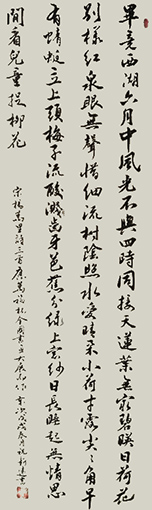 畢竟西湖六月中風光不與四時同接天蓮葉無窮碧映日荷花
別樣紅泉眼無聲惜細流樹陰照水愛晴柔小荷才露尖尖角早
有蜻蜓立上頭梅子流酸濺齒牙芭蕉分綠上窗紗日長睡起無情思
閒看兒童捉柳花
宋楊萬里詩三首